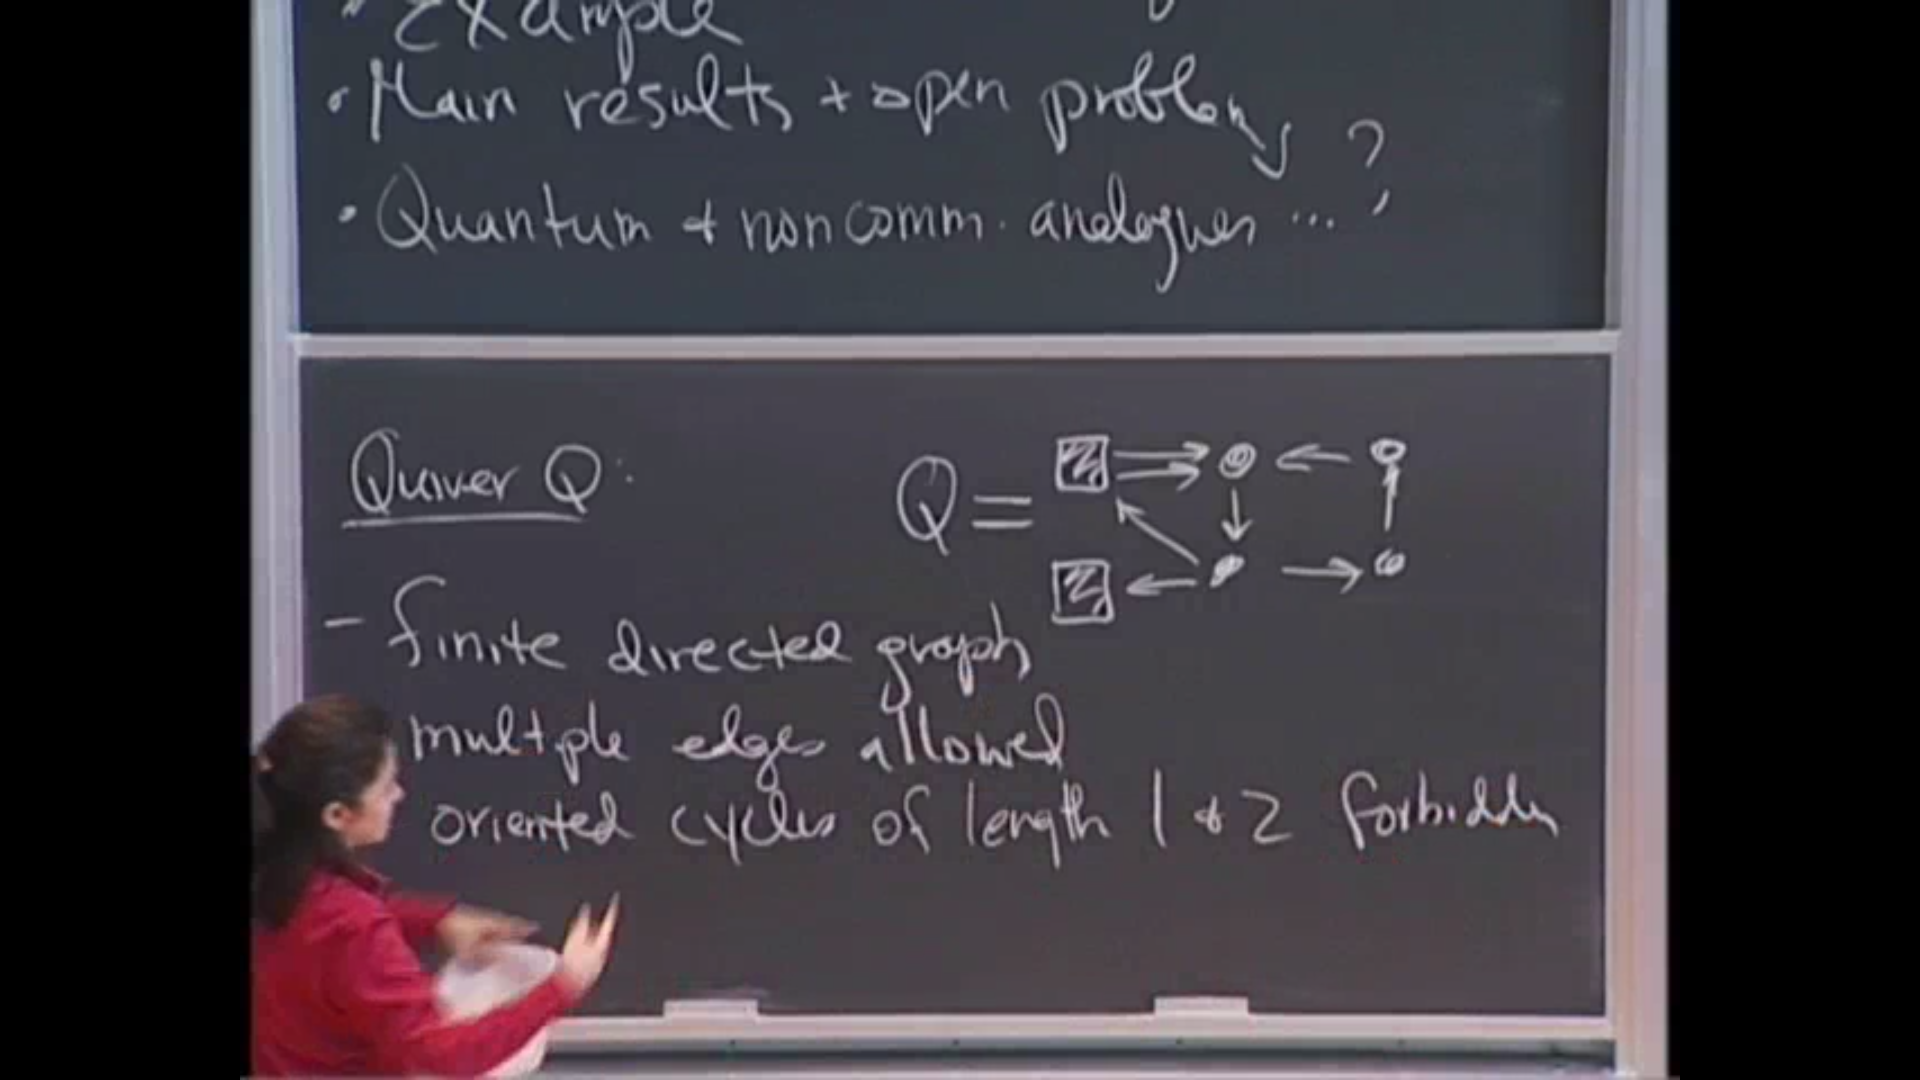 • Example
• Main results + open problems
• Quantum & noncomm. analogues ... ?
Quiver Q:
Q =
- finite directed graph
multiple edges allowed
oriented cycles of length 1 & 2 forbidden